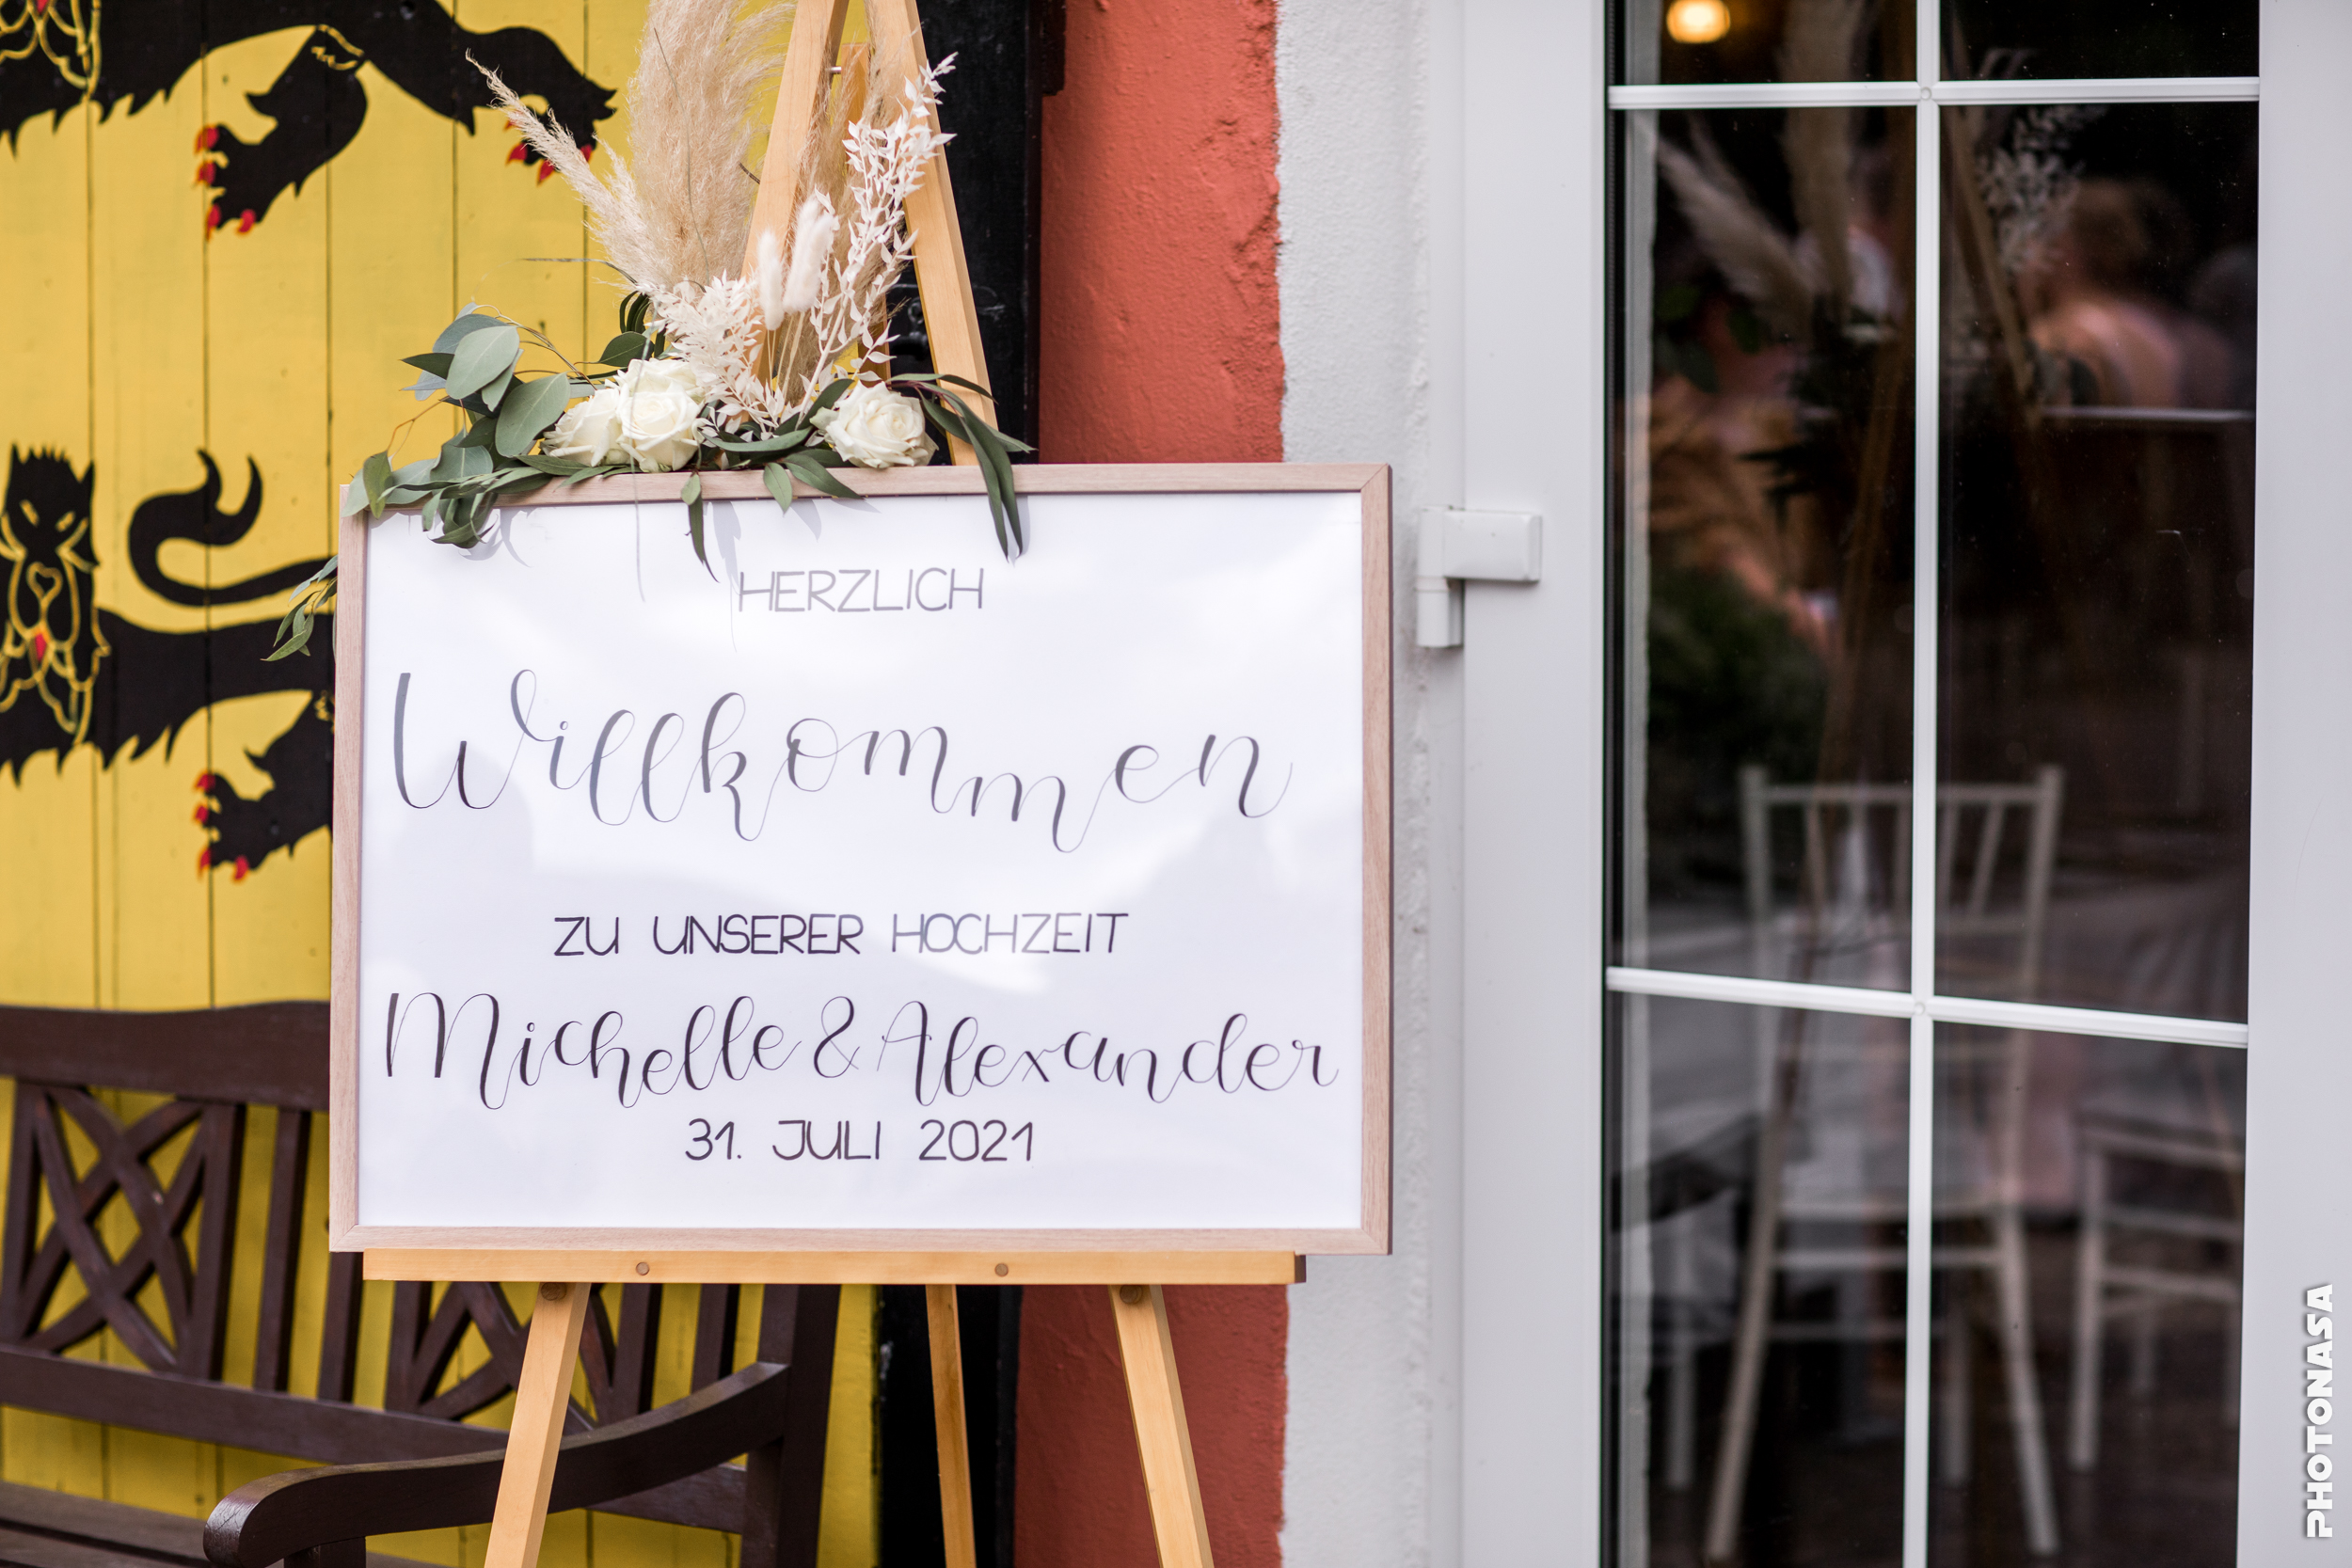 HERZLICH
Willkommen
ZU UNSERER HOCHZEIT
Michelle & Alexander
31. JULI 2021
PHOTONASA